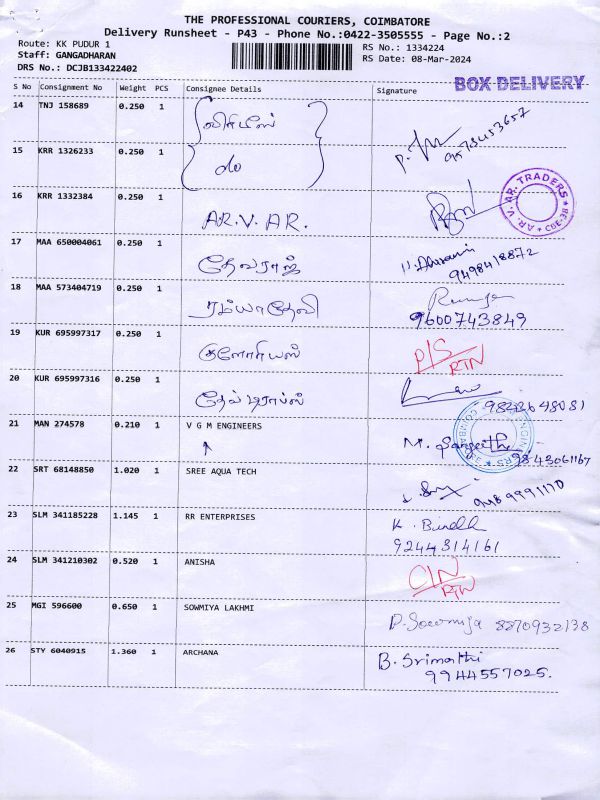 THE PROFESSIONAL COURIERS, COIMBATORE
Delivery Runsheet - P43 - Phone No.:0422-3505555 - Page No.:2
Route: KK PUDUR 1
RS No.: 1334224
Staff: GANGADHARAN
RS Date: 08-Mar-2024
DRS No.: DCJB133422402
BOX DELIVERY
S No Consignment No Weight PCS Consignee Details Signature
14 TNJ 158689 0.250 1
15 KRR 1326233 0.250 1 do
16 KRR 1332384 0.250 1 A.R.V.AR.
AR. V. AR. TRADERS ★ CBE-
17 MAA 650004061 0.250 1 தேவராஜ் 9498418872
18 MAA 573404719 0.250 1 ரம்யாதேவி Ramya
9600743849
19 KUR 695997317 0.250 1 P/S
RTN
20 KUR 695997316 0.250 1
21 MAN 274578 0.210 1 V G M ENGINEERS M. Sangeeth 9843061167
22 SRT 68148850 1.020 1 SREE AQUA TECH
23 SLM 341185228 1.145 1 RR ENTERPRISES K.
9244314161
24 SLM 341210302 0.520 1 ANISHA C/N
RTN
25 MGI 596600 0.650 1 SOWMIYA LAKHMI P. Sowmiya 8870932138
26 STY 6040915 1.360 1 ARCHANA B. Srimathi
9944557025.